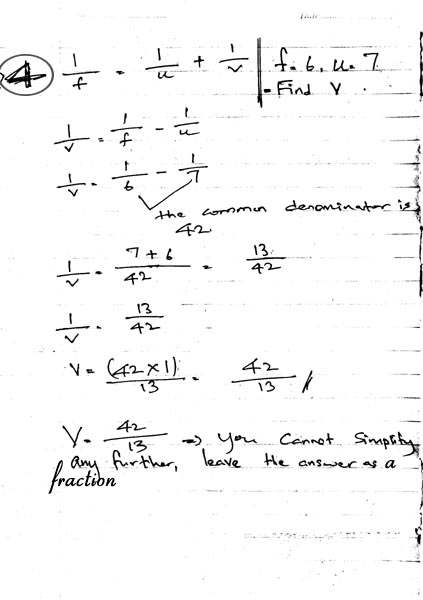 4 1/f = 1/u + 1/v | f = 6, u = 7
= Find V.
1/v = 1/f - 1/u
1/v = 1/6 - 1/7
the common denominator is
42
1/v = 7 + 6/42 = 13/42
1/v = 13/42
V = (42 × 1)/13 = 42/13 //
V = 42/13 ⇒ You Cannot Simplify
any further, leave the answer as a
fraction